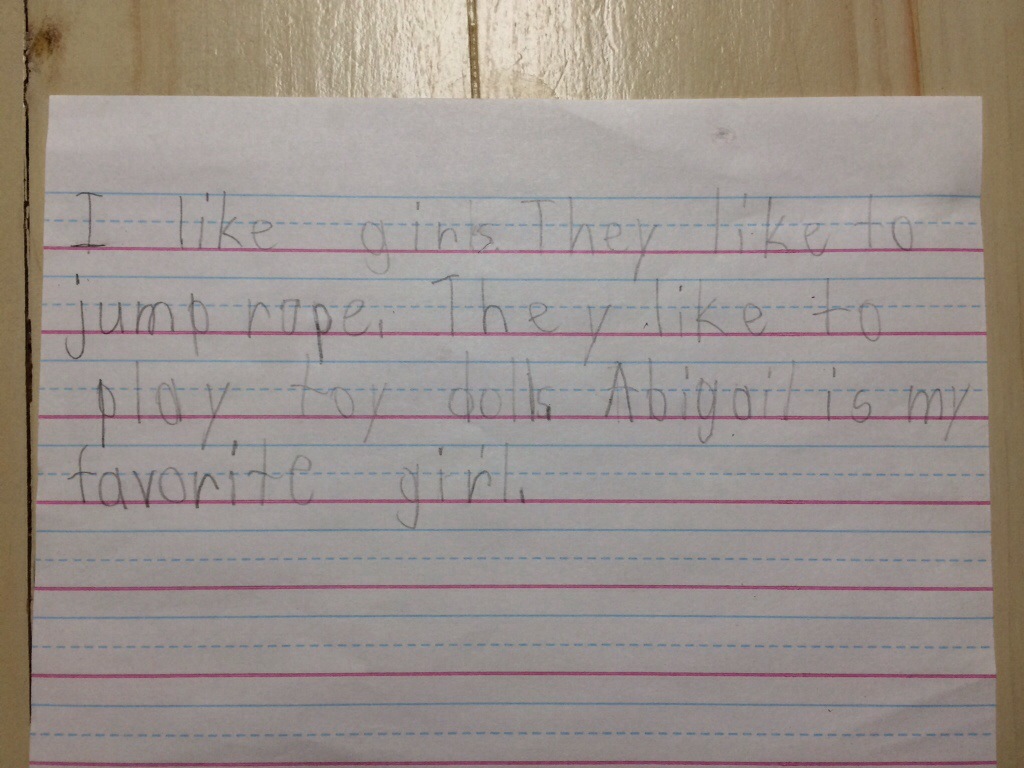 I like girls. They like to
jump rope. They like to
play toy dolls. Abigail is my
favorite girl.